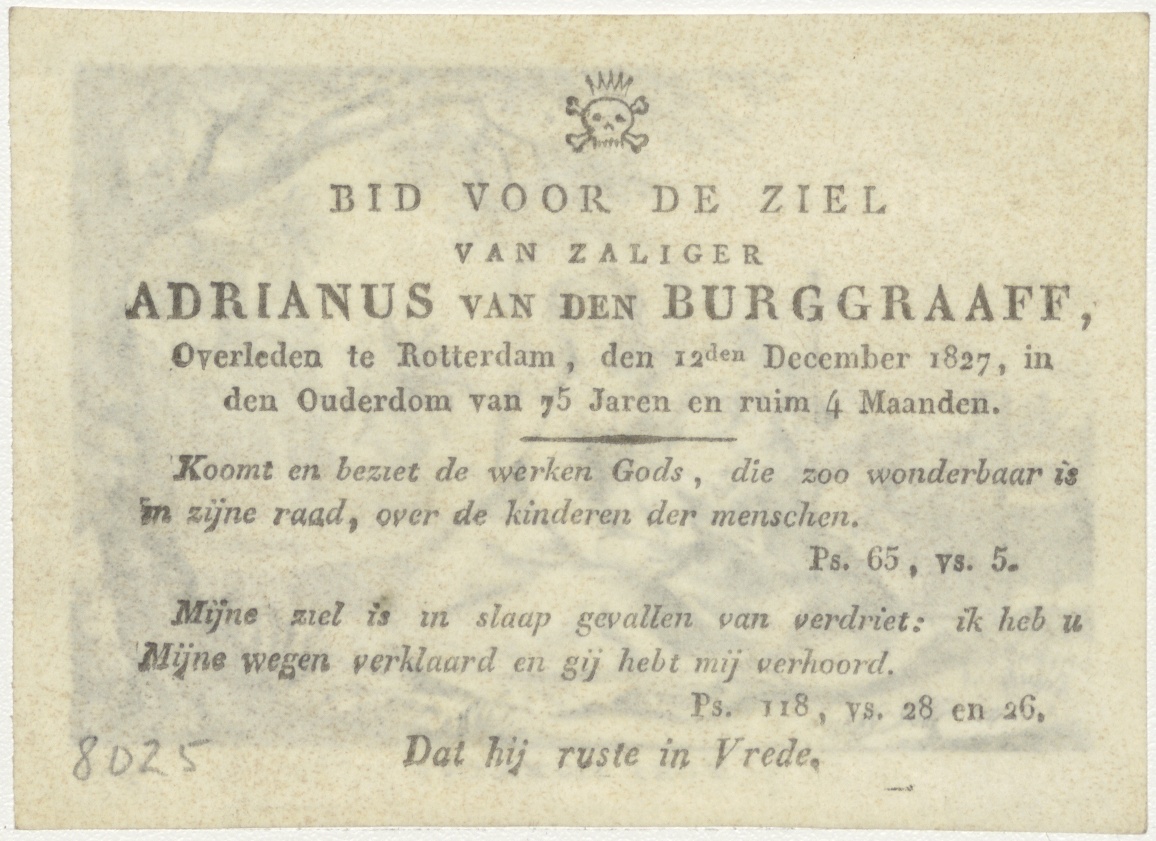 BID VOOR DE ZIEL
VAN ZALIGER
ADRIANUS VAN DEN BURGGRAAFF,
Overleden te Rotterdam, den 12den December 1827, in
den Ouderdom van 75 Jaren en ruim 4 Maanden.
Koomt en beziet de werken Gods, die zoo wonderbaar is
in zijne raad, over de kinderen der menschen.
Ps. 65, vs. 5.
Mijne ziel is in slaap gevallen van verdriet: ik heb u
Mijne wegen verklaard en gij hebt mij verhoord.
Ps. 118, vs. 28 en 26.
Dat hij ruste in Vrede.
8025